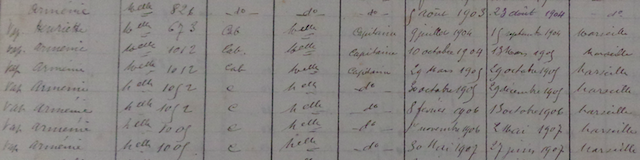 Arménie h elle 826 d° d° d° 5 Août 1903 28 août 1904 d°
Vap. Henriette h elle 673 Cab h elle Capitaine 9 juillet 1904 15 septembre 1904 Marseille
Vap Arménie h elle 1012 Cab. h elle Capitaine 10 octobre 1904 13 Mars 1905 Marseille
Vap Arménie h elle 1012 Cab h elle Capitaine 29 Mars 1905 29 octobre 1905 Marseille
Vap Arménie h elle 1052 c h elle d° octobre 1905 29 décembre 1905 Marseille
Vap Arménie h elle 1052 c h elle d° 8 février 1906 13 octobre 1906 Marseille
Vap Arménie h elle 1005 c h elle d° novembre 1906 2 Mai 1907 Marseille
Vap Arménie h elle 1005 c h elle d° 30 Mai 1907 27 juin 1907 Marseille